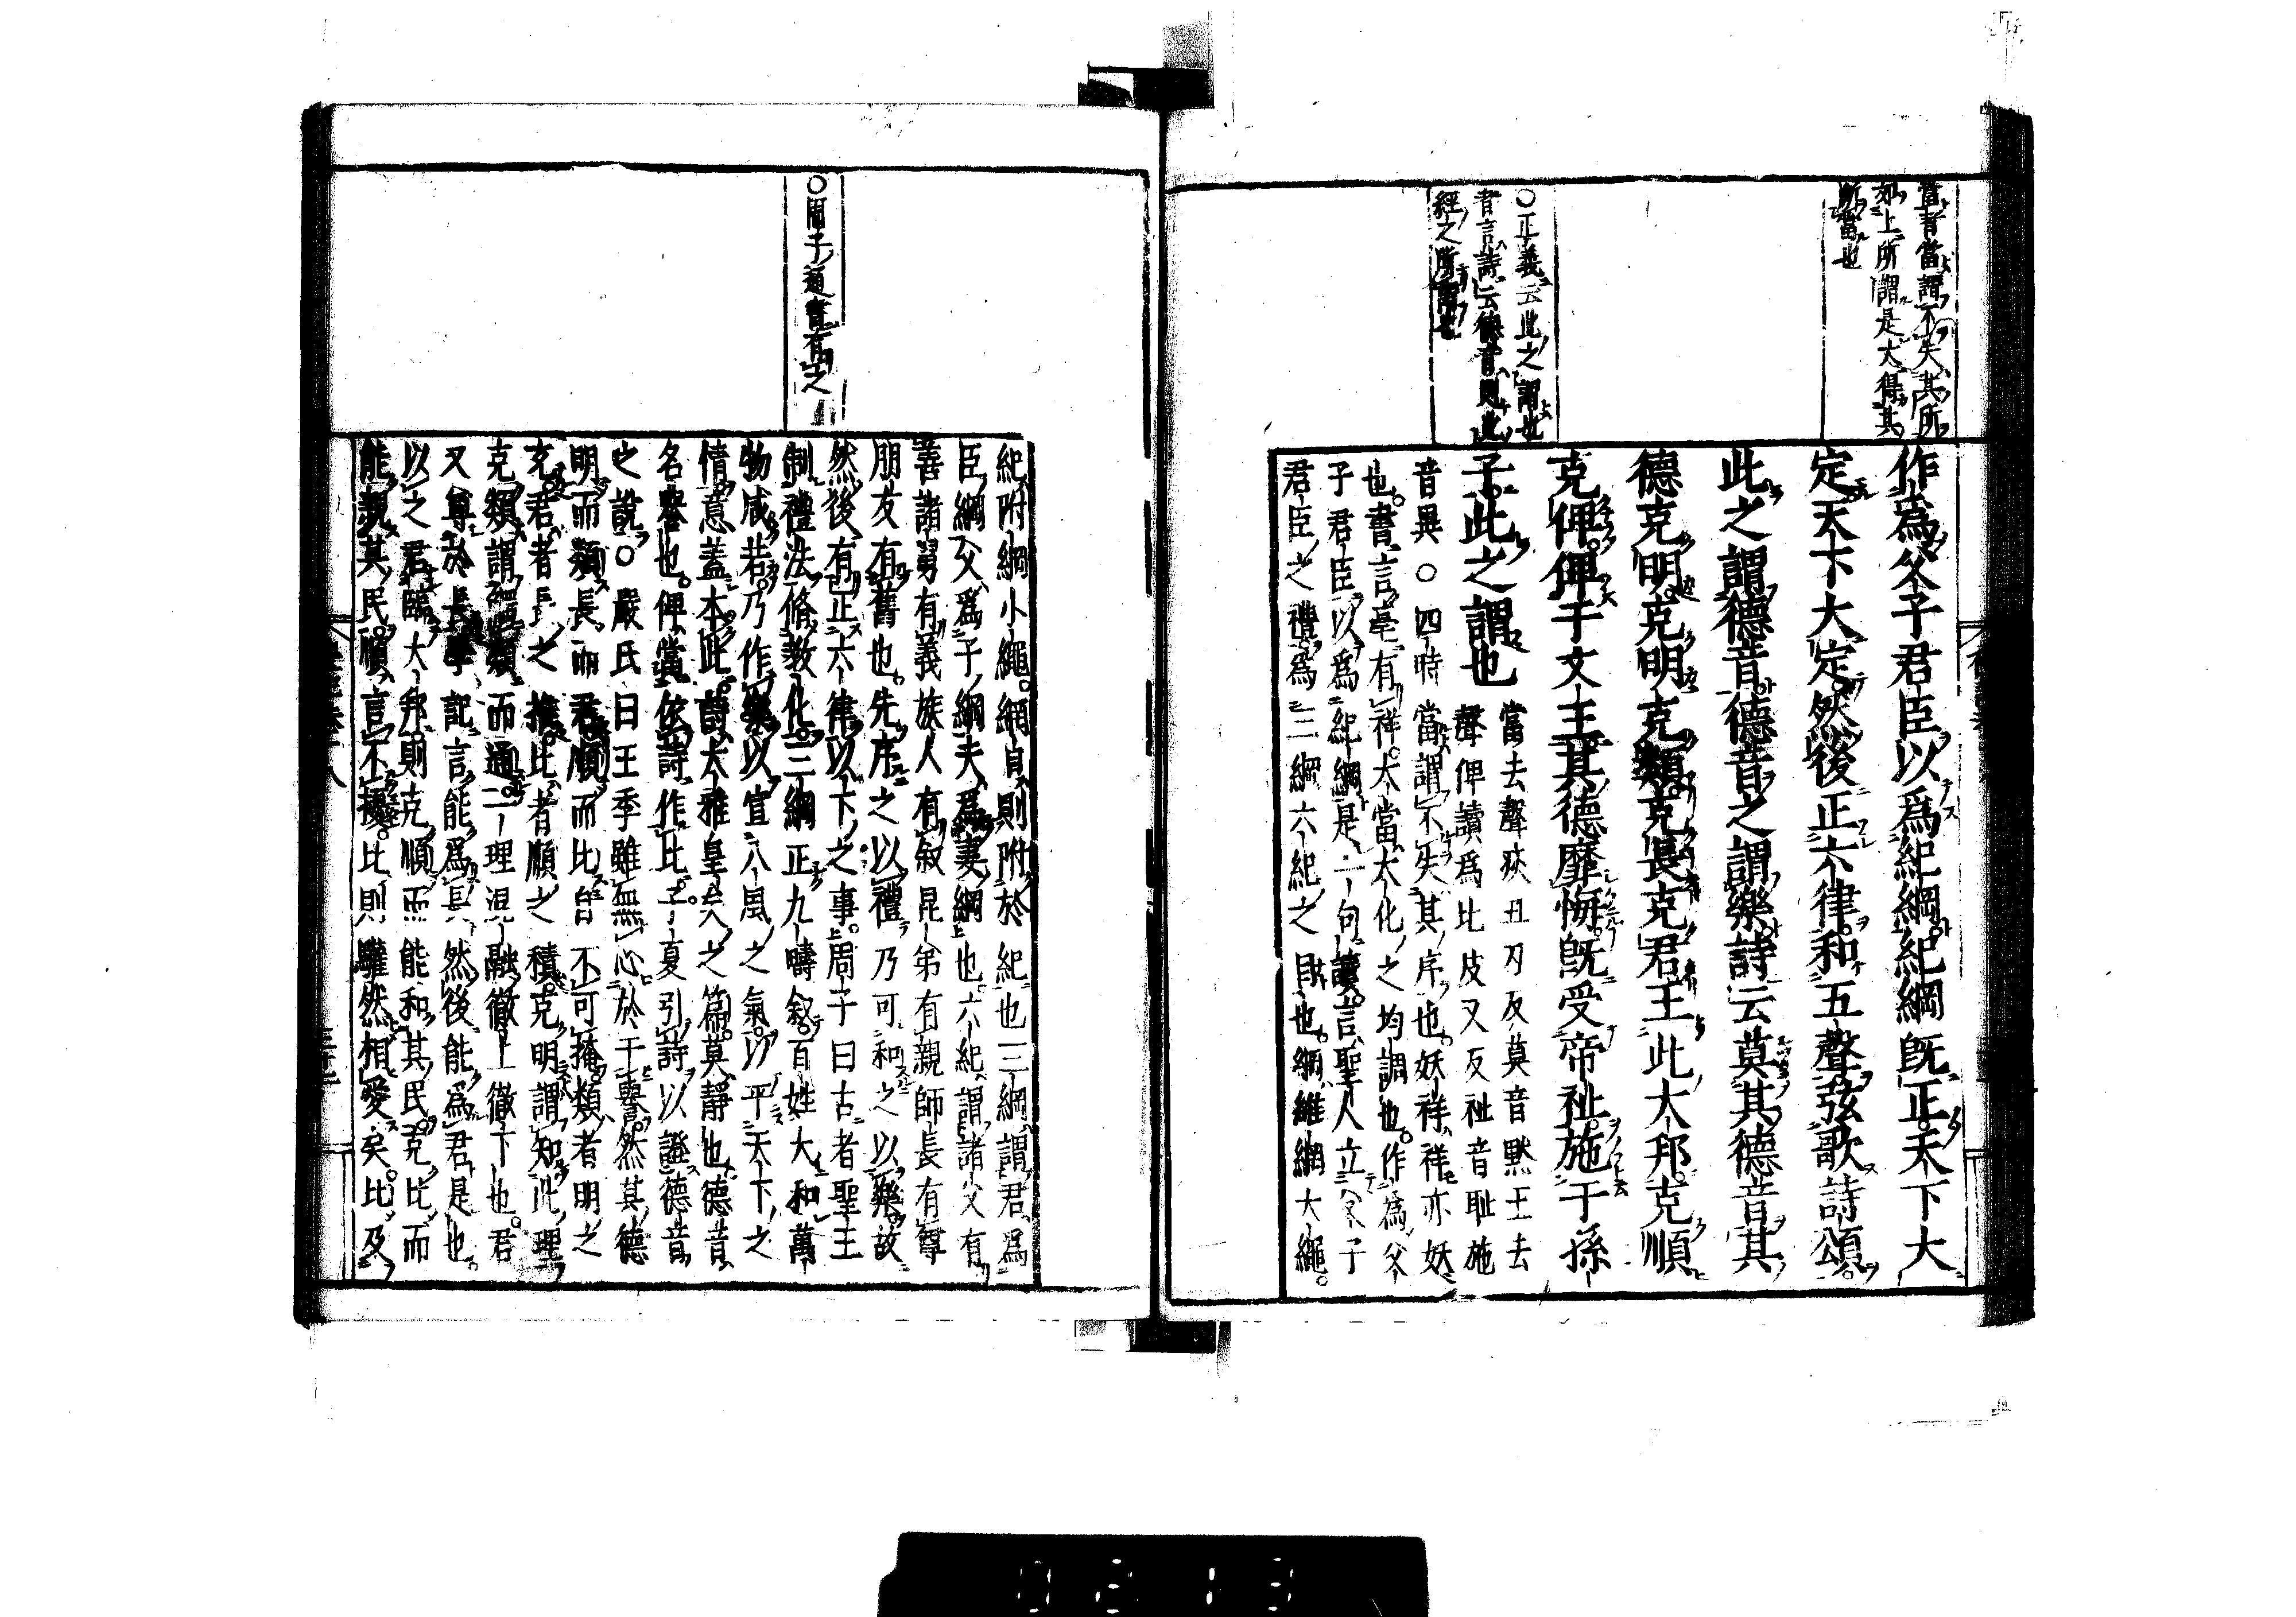 當者當謂不失其所
如上所謂是大得其
所當也
作爲父子君臣以爲紀綱紀綱既正天下大
定天下大定然後正六律和五聲弦歌詩頌
此之謂德音德音之謂樂詩云莫其德音其
德克明克明克類克長克君王此大邦克順
克俾俾于文王其德靡悔既受帝祉施于孫
○正義云此之謂也
者言詩云德音則此
經之所謂也
子此之謂也
當去聲疢丑刃反莫音黙王去
聲俾讀爲比皮又反祉音恥施
音異○四時當謂不失其序也妖祥祥亦妖
也書言亳有祥大當大化之均調也作爲父
子君臣以爲紀綱是一句讀言聖人立父子
君臣之禮爲三綱六紀之目也綱維綱大繩
紀附綱小繩綱自則附於紀也三綱謂君爲
臣綱父爲子綱夫爲妻綱也六紀謂諸父有
善諸舅有義族人有叙昆弟有親師長有尊
朋友有舊也先序之以禮乃可和之以樂故
然後有正六律以下之事周子曰古者聖王
○周子通書有之
制禮法脩敎化三綱正九疇叙百姓大和萬
物咸若乃作樂以宣八風之氣以平天下之
情意蓋本此詩大雅皇矣之篇莫靜也德音
名譽也俾當依詩作比子夏引詩以證德音
之說○嚴氏曰王季雖無心於干譽然其德
明而類長而君順而比皆不可掩類者明之
充君者長之推比者順之積克明謂知此理
克類謂觸類而通一理混融徹上徹下也君
又尊於長學記言能爲長然後能爲君是也
以之君臨大邦則克順而能和其民克比而
能親其民順言不擾比則驩然相愛矣比及